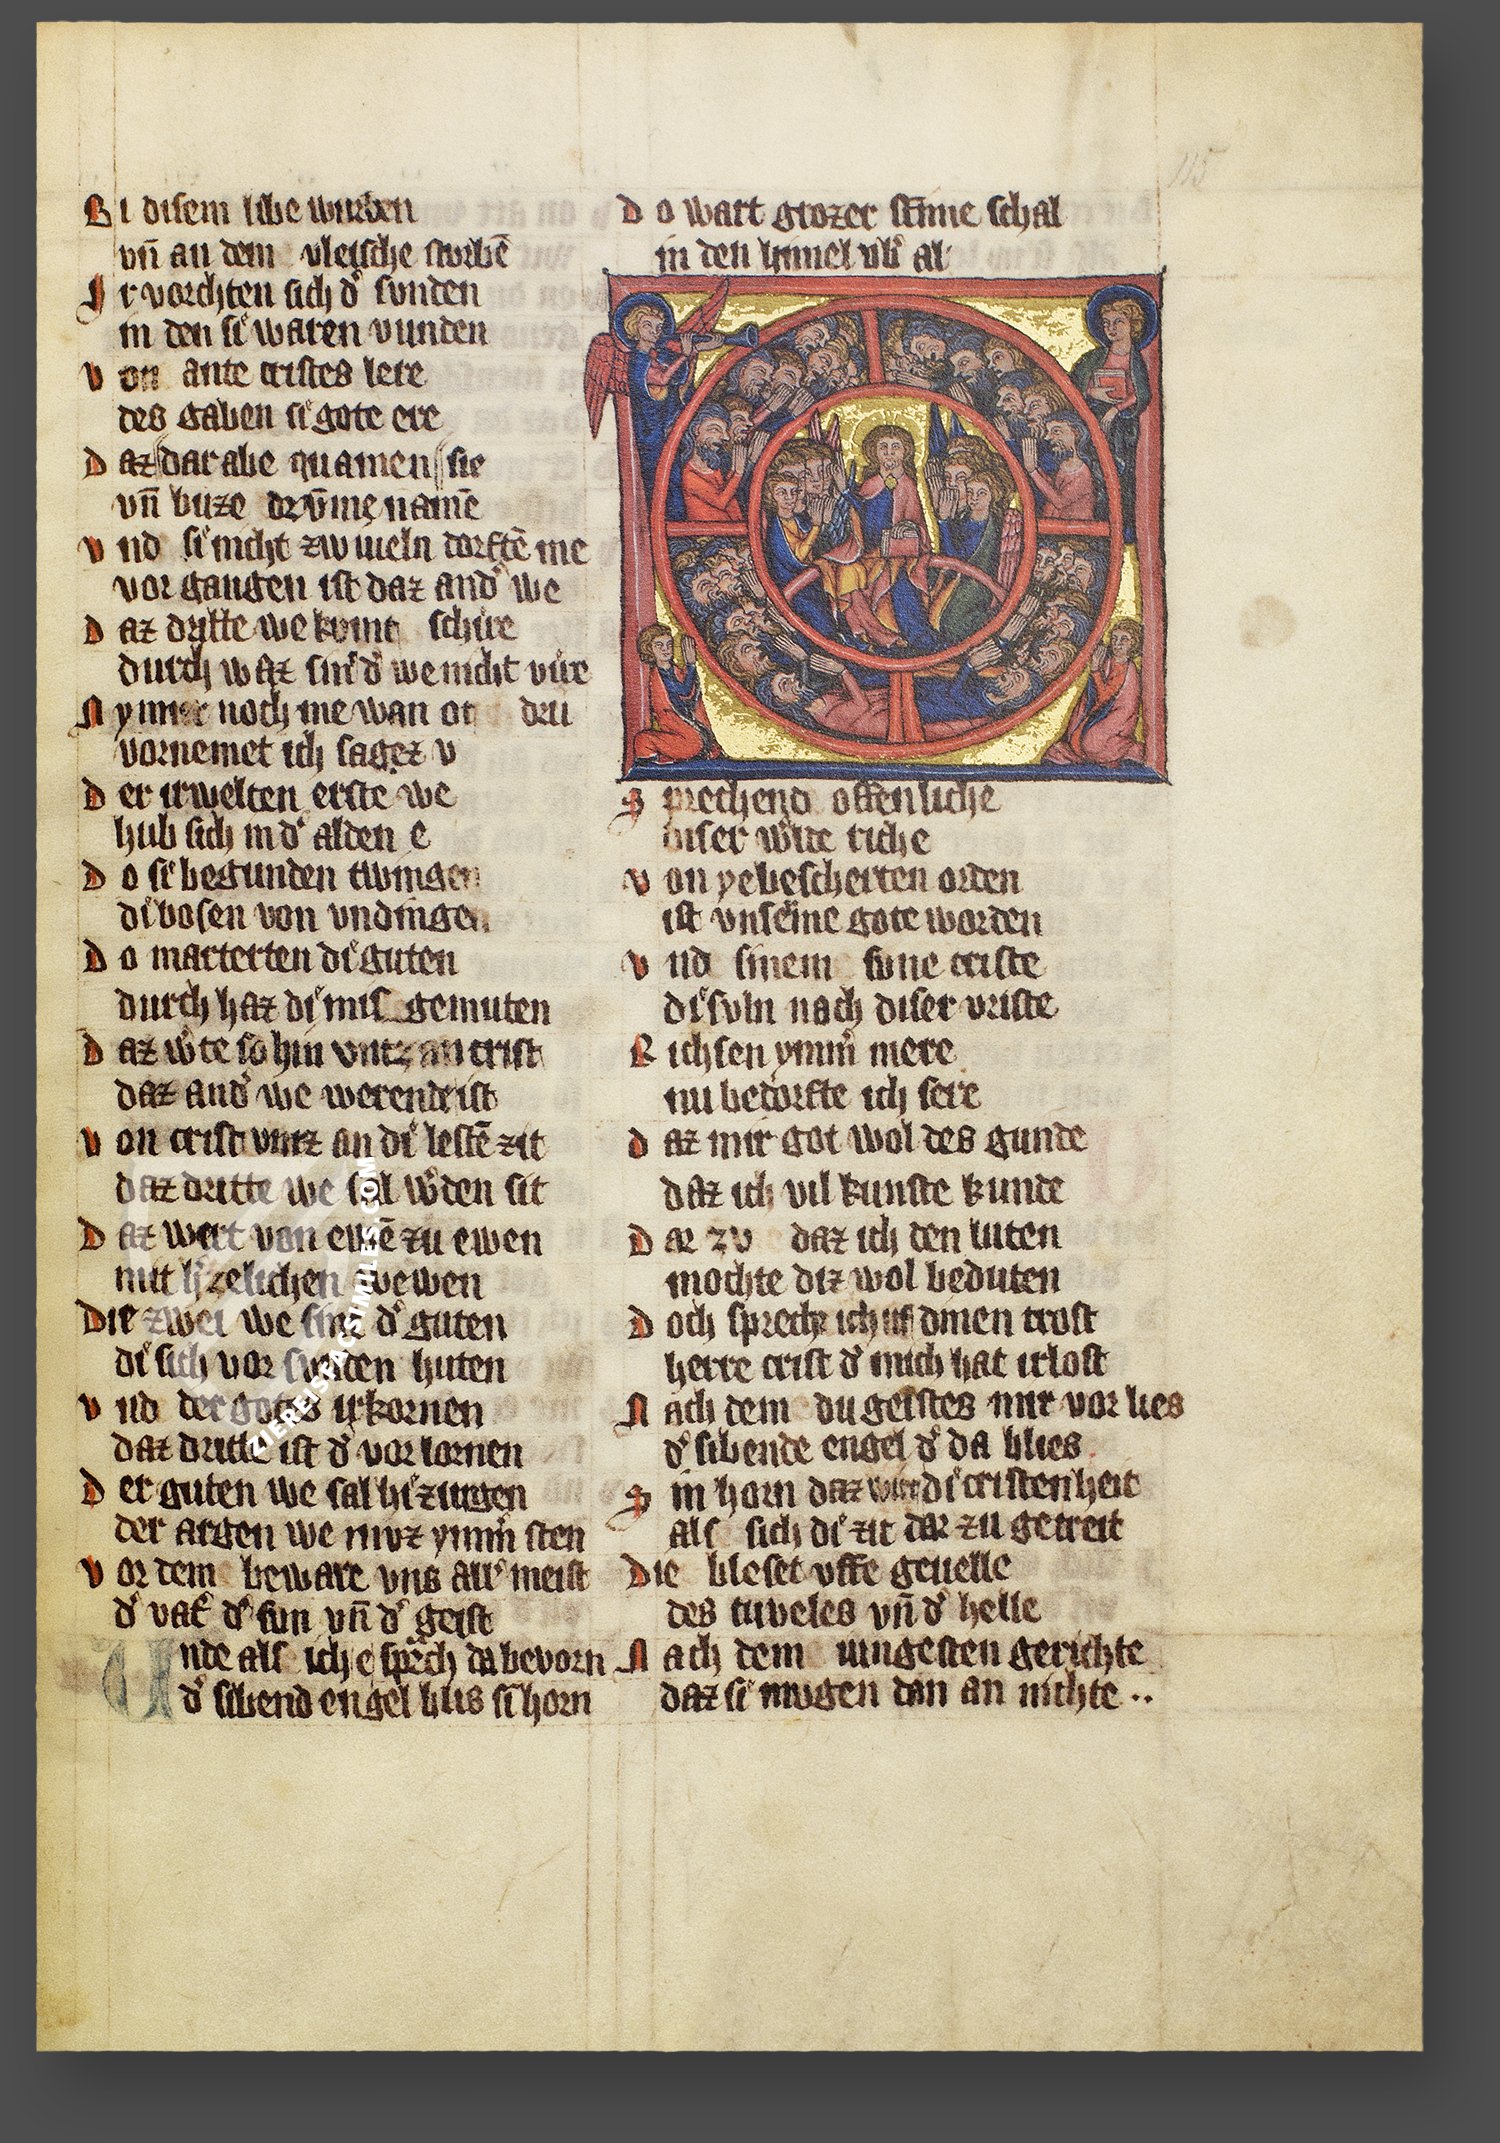 Bi disem libe wurben
vn̄ an dem vleische sturbē
Ir vorchten sich d͛ sunden
in den si͛ waren vunden
von ante cristes lere
des gaben si͛ gote ere
Daz dar abe quamen sie
vn̄ buze
vnd si͛ nicht zwiueln dorftē me
vor gangen ist daz and͛ we
Daz dritte we kvmt schire
durch waz sin͛ d͛ we nicht vire
Nymer noch me wan dru
vornemet ich sagez v
Der irwelten erste we
hub sich in d͛ alden e
Do si͛ begunden twingen
di͛ bosen von vndingen
Do marterten di͛ guten
durch haz di͛ mis gemuten
Daz w͛te so hin vntz an crist
daz and͛ we werende ist
von crist vntz an di͛ lestē zit
daz dritte we sal w͛den sit
Daz wert von ewē zu ewen
mit hezelichen wewen
Die zwei we sint d͛ guten
di͛ sich vor sunden huten
vnd der gotes irkornen
daz dritte ist d͛ vorlornen
Der guten we sal hi͛ zurgen
der argen we mvz ymm͛ sten
vor dem beware vns all͛ meist
d͛ vat͛ d͛ sun vn̄ d͛ geist
Unde als ich e sprach da bevorn
d͛ sibend engel blis si͛ horn
Do wart grozer stimme schal
in den himel vb͛ al
115
Sprechend offenliche
diser w͛lde riche
von yebescherten orden
ist vnserme gote worden
vnd sinem sune criste
di͛ suln nach diser vriste
Richsen ymm͛ mere
nu bedorfte ich sere
Daz mir got wol des gunde
daz ich vil kunste kunde
Dar zv daz ich den luten
mochte diz wol beduten
Doch spreche ich uf dinen trost
herre crist d͛ mich hat irlost
Nach dem du geistes mir vor lies
d͛ sibende engel d͛ da blies
Sin horn daz wirt di͛ cristenheit
als sich di͛ zit dar zu getreit
Die bleset vffe geuelle
des tuveles vn̄ d͛ helle
Nach dem iungesten gerichte
daz si͛ mugen dan an nichte ..
ZIEREIS FACSIMILES.COM